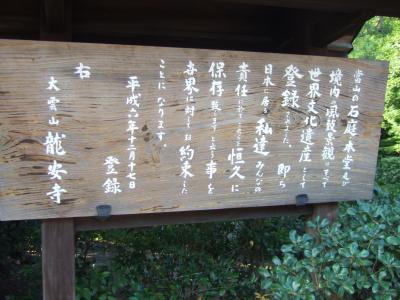 当山の石庭本堂及び
境内の風致景観のすべて
世界文化遺産として
登録されました。即ち
日本に居る私達みんなの
責任に於て恒久に
保存致しますと云う事を
各界に対しお約束した
ことになります。
平成六年十二月十七日
登録
右
大雲山 龍安寺